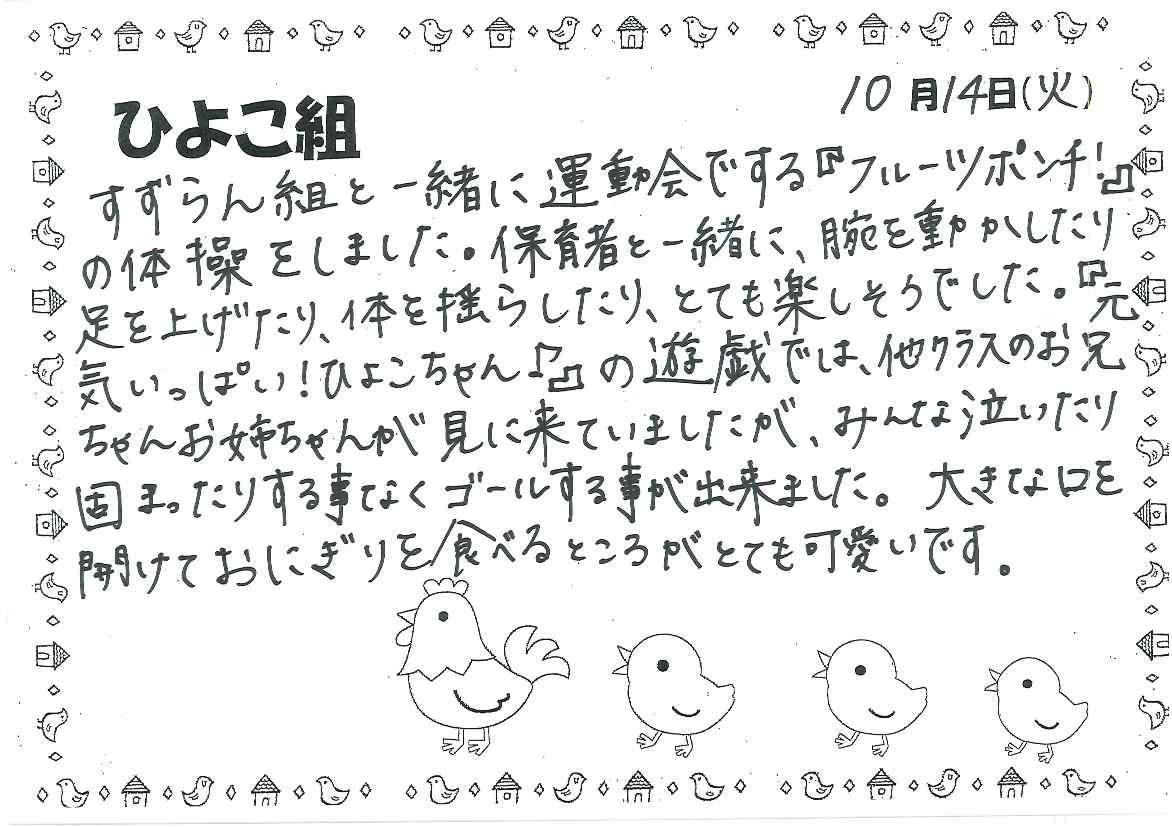 10月14日(火)
ひよこ組
すずらん組と一緒に運動会でする『フルーツポンチ!』
の体操をしました。保育者と一緒に、腕を動かしたり
足を上げたり、体を揺らしたり、とても楽しそうでした。『元
気いっぱい!ひよこちゃん♪』の遊戯では、他クラスのお兄
ちゃんお姉ちゃんが見に来ていましたが、みんな泣いたり
固まったりする事なくゴールする事が出来ました。大きな口を
開けておにぎりを食べるところがとても可愛いです。